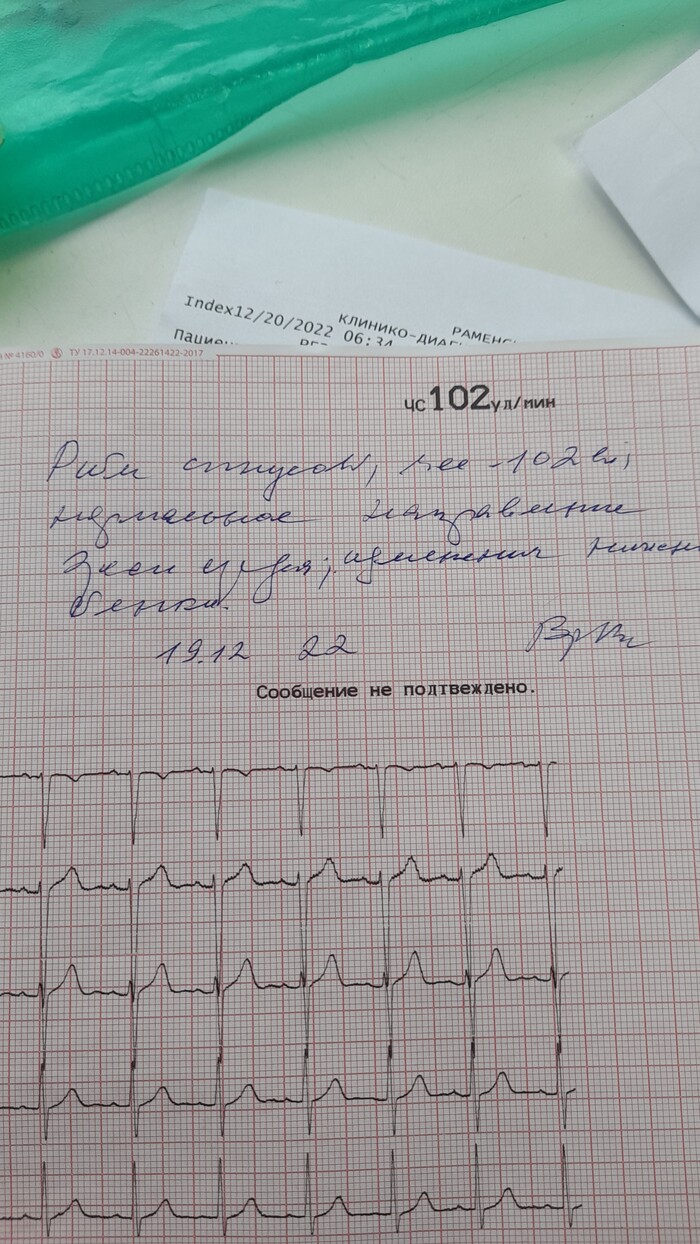 Index12/20/2022 06:34
КЛИНИКО-ДИАГ
РАМЕНС
Пациен
№ 4160/0 ТУ 17.12.14-004-22261422-2017
ЧС 102 уд/мин
Ритм синусов, чсс -102 в,
нормальное направление
Эос сердца; изменения нижн
стенки.
19.12 22
Сообщение не подтвеждено.